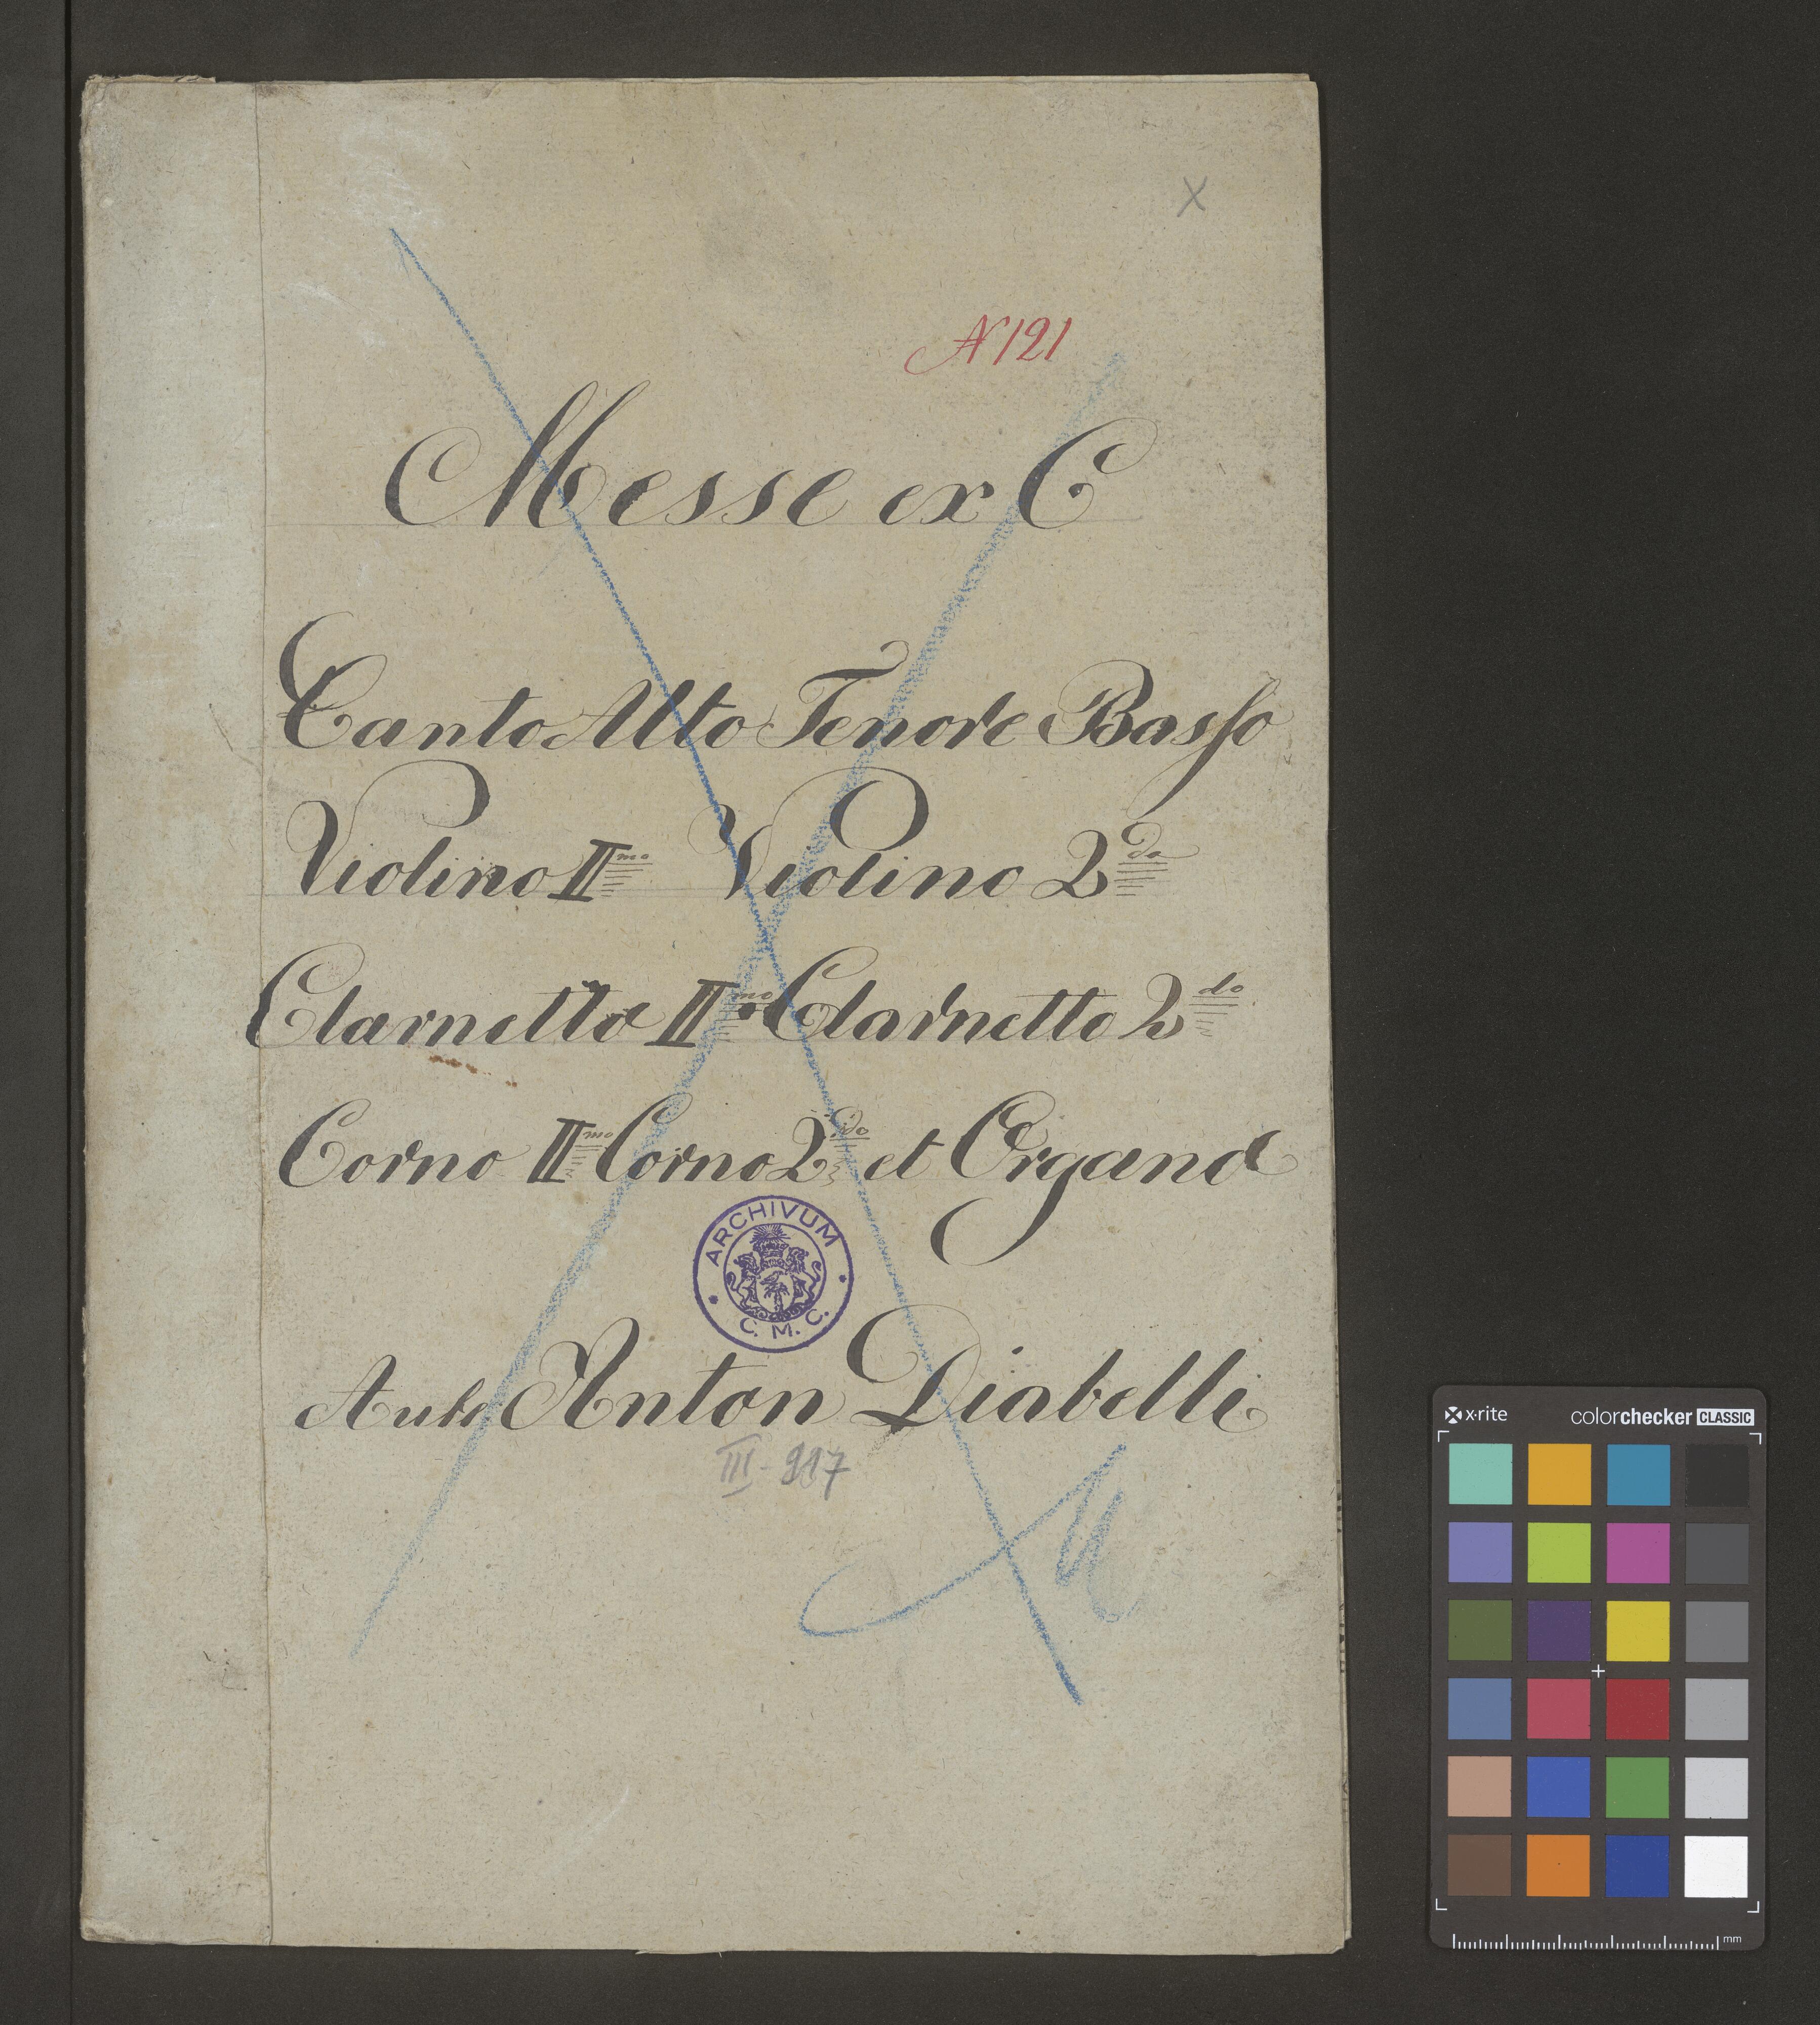 X
N 121
Messe ex C
Canto Alto Tenore Basso
Violino Imo Violino 2do
Clarnetto Imo Clarnetto 2do
Corno Imo Corno 2do et Organo
ARCHIVUM
C. M. C.
Anton Diabelli
III - 917
x·rite
colorchecker CLASSIC
mm